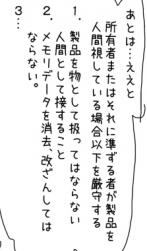 あとは…ええと
所有者またはそれに準ずる者が製品を
人間視している場合以下を厳守する
1．製品を物として扱ってはならない
人間として接すること
2．メモリデータを消去、改ざんしては
ならない。
3…